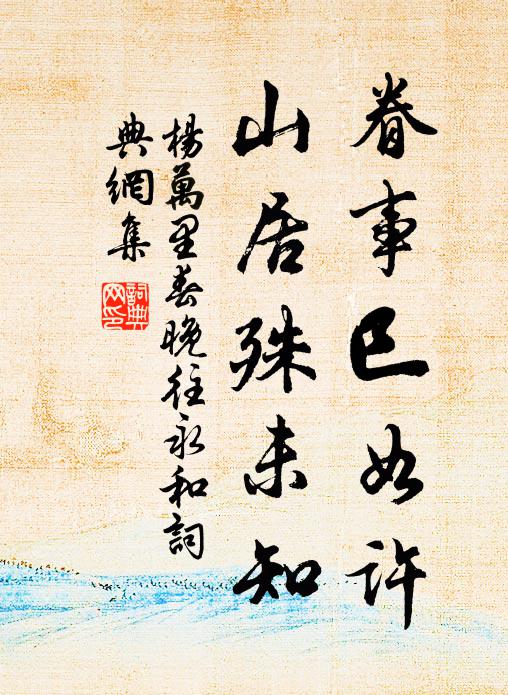 春事已如许
山居殊未知
楊萬里春晚往永和詞
典網集
詞典
网印